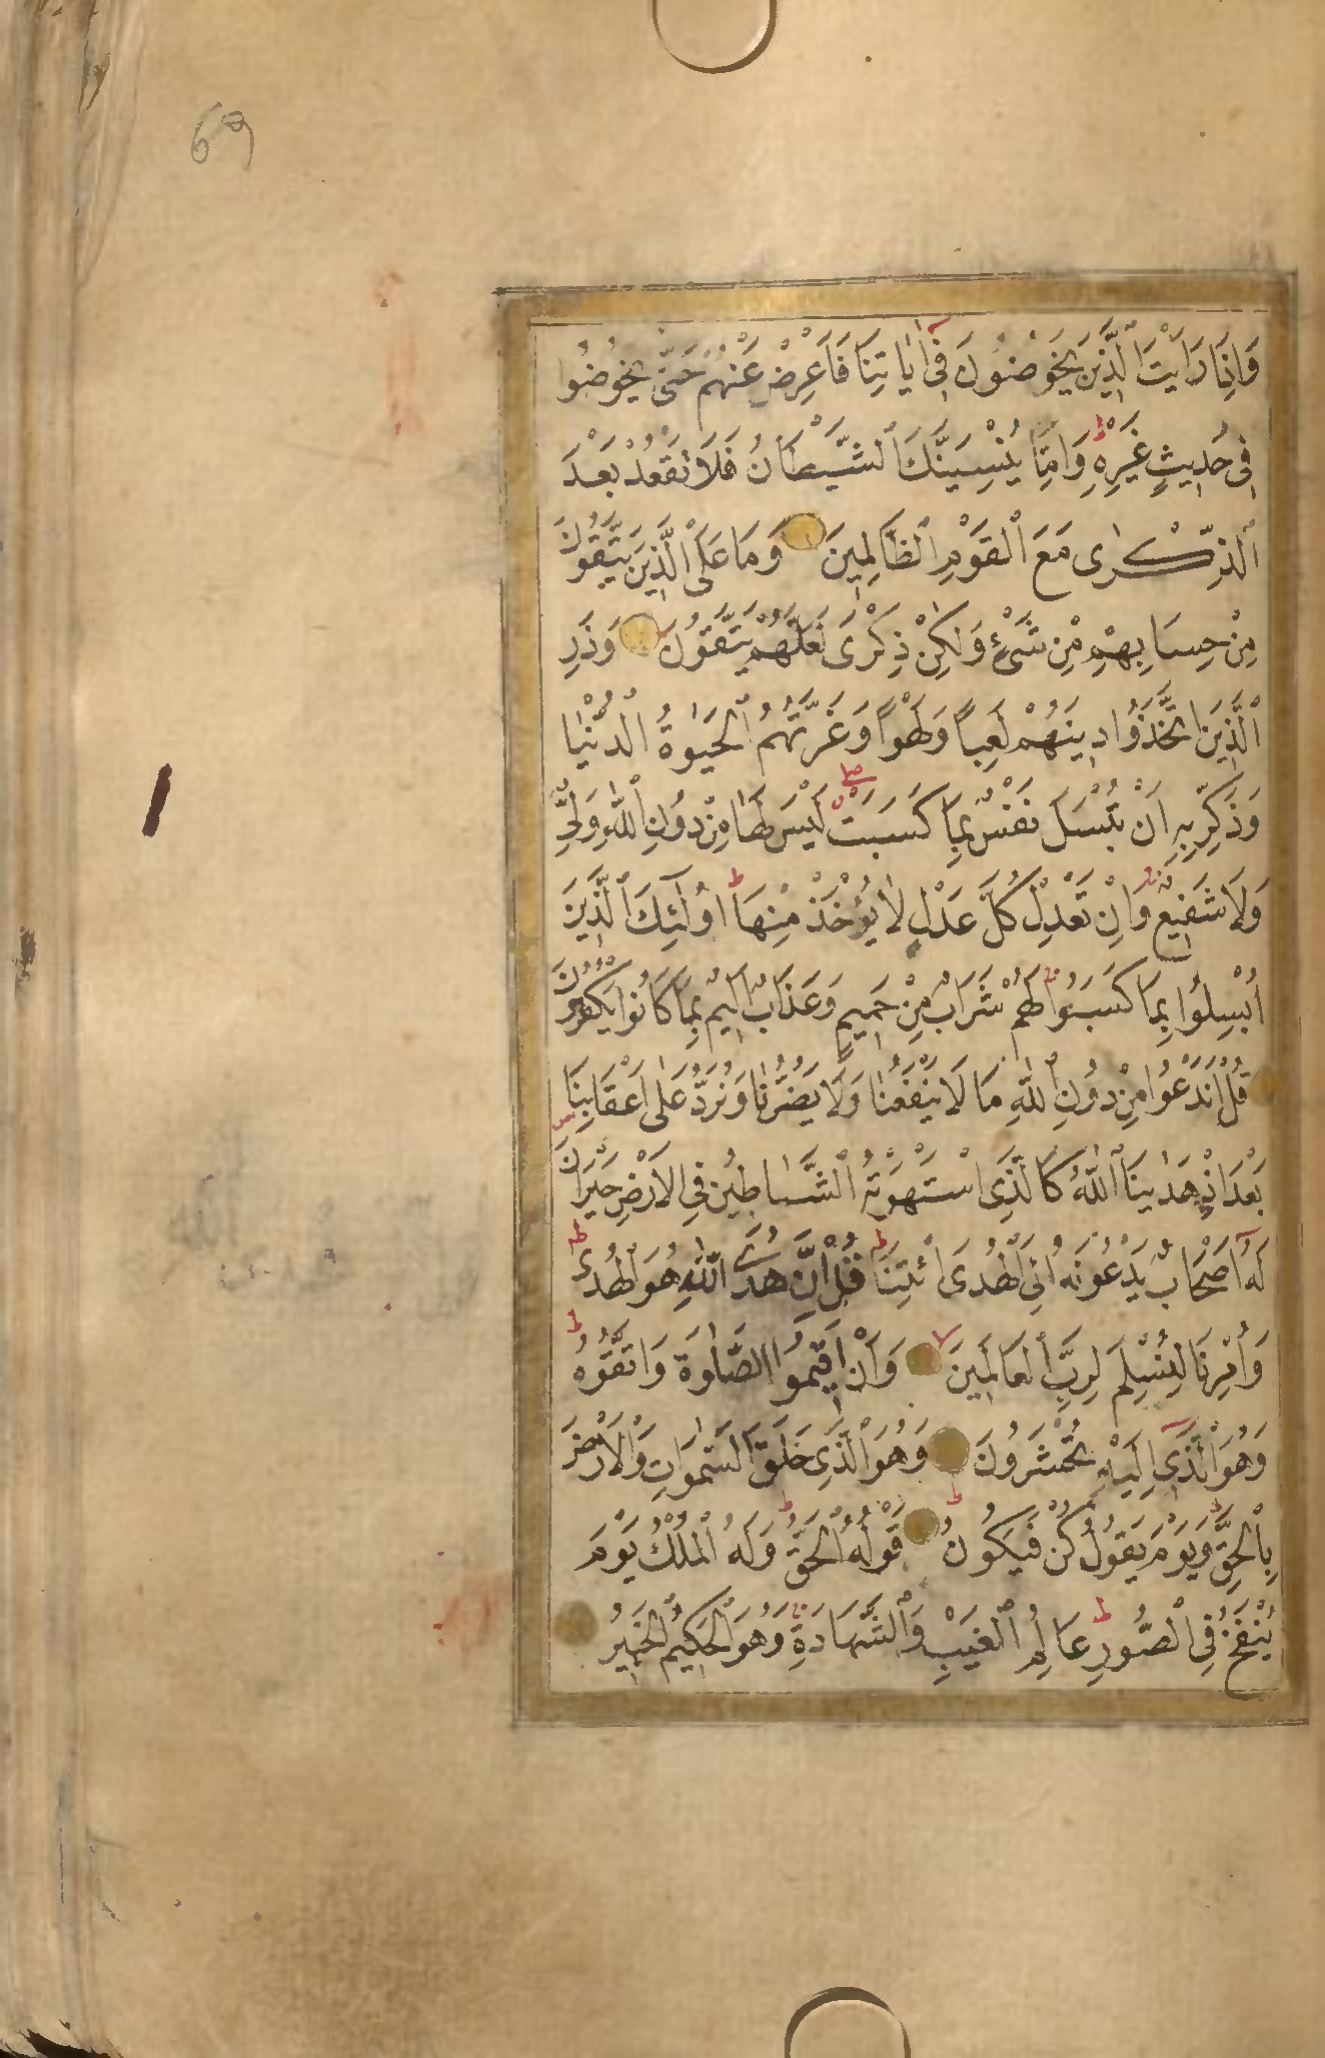 69
وَاِذَا رَاَيْتَ الَّذِينَ يَخُوضُونَ فِىٓ اٰيَاتِنَا فَاَعْرِضْ عَنْهُمْ حَتّٰى يَخُوضُوا
فِى حَدِيثٍ غَيْرِهِ وَاِمَّا يُنْسِيَنَّكَ الشَّيْطَانُ فَلَا تَقْعُدْ بَعْدَ
الذِّكْرٰى مَعَ الْقَوْمِ الظَّالِمِينَ وَمَا عَلَى الَّذِينَ يَتَّقُونَ
مِنْ حِسَابِهِمْ مِنْ شَىْءٍ وَلٰكِنْ ذِكْرٰى لَعَلَّهُمْ يَتَّقُونَ وَذَرِ
الَّذِينَ اتَّخَذُوا دِينَهُمْ لَعِبًا وَلَهْوًا وَغَرَّتْهُمُ الْحَيٰوةُ الدُّنْيَا
وَذَكِّرْ بِهِ اَنْ تُبْسَلَ نَفْسٌ بِمَا كَسَبَتْ لَيْسَ لَهَا مِنْ دُونِ اللّٰهِ وَلِىٌّ
وَلَا شَفِيعٌ وَاِنْ تَعْدِلْ كُلَّ عَدْلٍ لَا يُؤْخَذْ مِنْهَا اُولٰٓئِكَ الَّذِينَ
اُبْسِلُوا بِمَا كَسَبُوا لَهُمْ شَرَابٌ مِنْ حَمِيمٍ وَعَذَابٌ اَلِيمٌ بِمَا كَانُوا يَكْفُرُونَ
قُلْ اَنَدْعُوا مِنْ دُونِ اللّٰهِ مَا لَا يَنْفَعُنَا وَلَا يَضُرُّنَا وَنُرَدُّ عَلٰى اَعْقَابِنَا
بَعْدَ اِذْ هَدٰينَا اللّٰهُ كَالَّذِى اسْتَهْوَتْهُ الشَّيَاطِينُ فِى الْاَرْضِ حَيْرَانَ
لَهُٓ اَصْحَابٌ يَدْعُونَهُ اِلَى الْهُدَى ائْتِنَا قُلْ اِنَّ هُدَى اللّٰهِ هُوَ الْهُدٰى
وَاُمِرْنَا لِنُسْلِمَ لِرَبِّ الْعَالَمِينَ وَاَنْ اَقِيمُوا الصَّلٰوةَ وَاتَّقُوهُ
وَهُوَ الَّذِىٓ اِلَيْهِ تُحْشَرُونَ وَهُوَ الَّذِى خَلَقَ السَّمٰوَاتِ وَالْاَرْضَ
بِالْحَقِّ وَيَوْمَ يَقُولُ كُنْ فَيَكُونُ قَوْلُهُ الْحَقُّ وَلَهُ الْمُلْكُ يَوْمَ
يُنْفَخُ فِى الصُّورِ عَالِمُ الْغَيْبِ وَالشَّهَادَةِ وَهُوَ الْحَكِيمُ الْخَبِيرُ